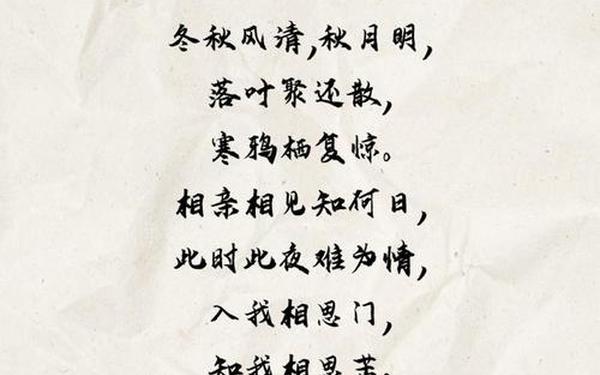 冬秋风清,秋月明,
落叶聚还散,
寒鸦栖复惊。
相亲相见知何日,
此时此夜难为情,
入我相思门,
知我相思苦,